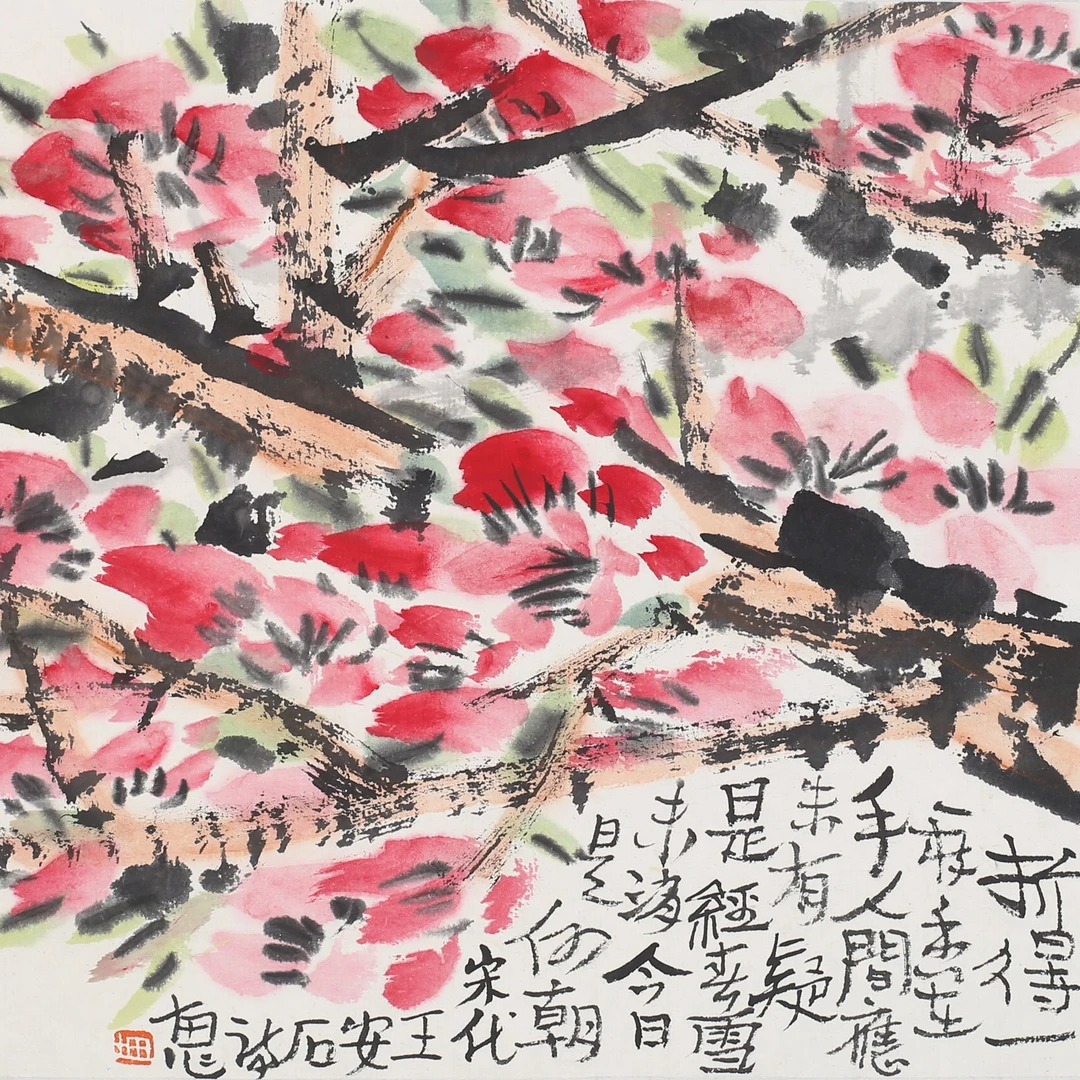 折得一
枝香在
手人間應
未有疑
是經春雪
未消今日
是何朝
宋代
王安石詩